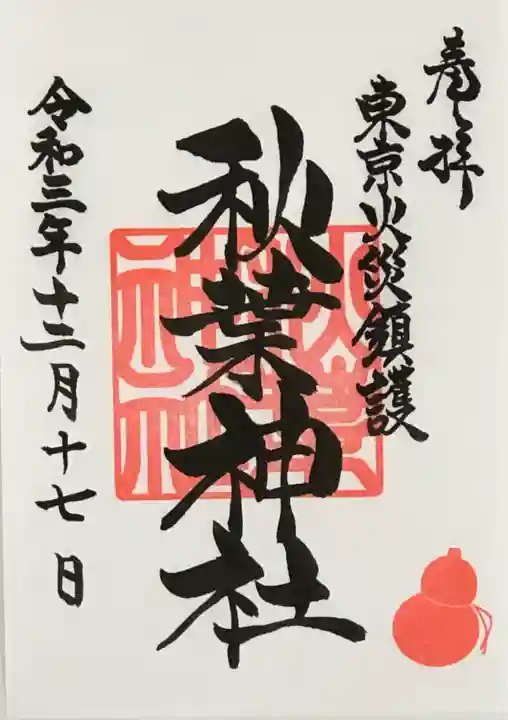 奉拝
東京火災鎮護
秋葉神社
秋葉神社
令和三年十二月十七日